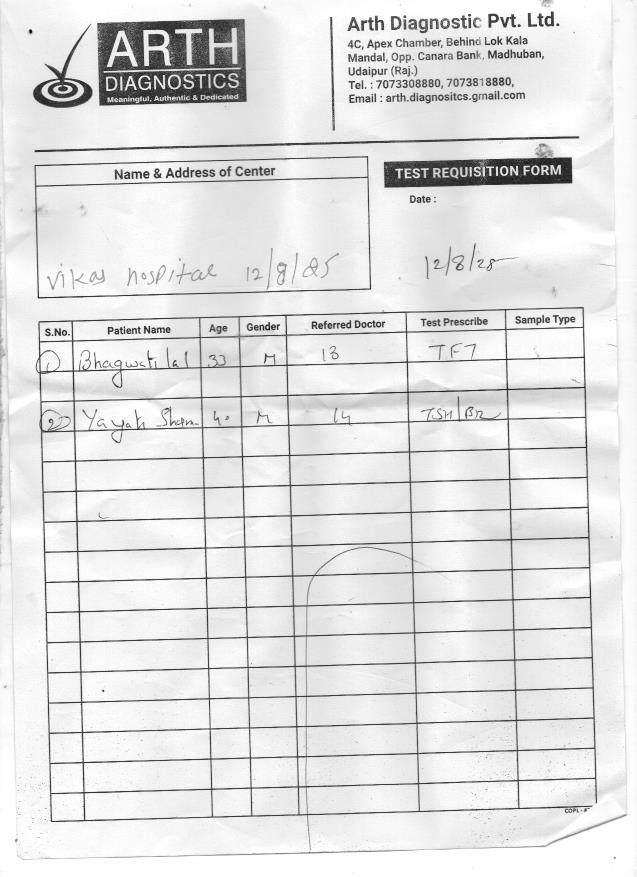 ARTH
DIAGNOSTICS
Meaningful, Authentic & Dedicated
Arth Diagnostic Pvt. Ltd.
4C, Apex Chamber, Behind Lok Kala
Mandal, Opp. Canara Bank, Madhuban,
Udaipur (Raj.)
Tel. : 7073308880, 7073818880,
Email : arth.diagnositcs.gmail.com
Name & Address of Center
TEST REQUISITION FORM
Date :
vikas hospital 12/8/25
12/8/25
S.No. Patient Name Age Gender Referred Doctor Test Prescribe Sample Type
1 Bhagwati lal 33 M 13 TFT
2 Yayati 40 M 14 TSH/
COPL-